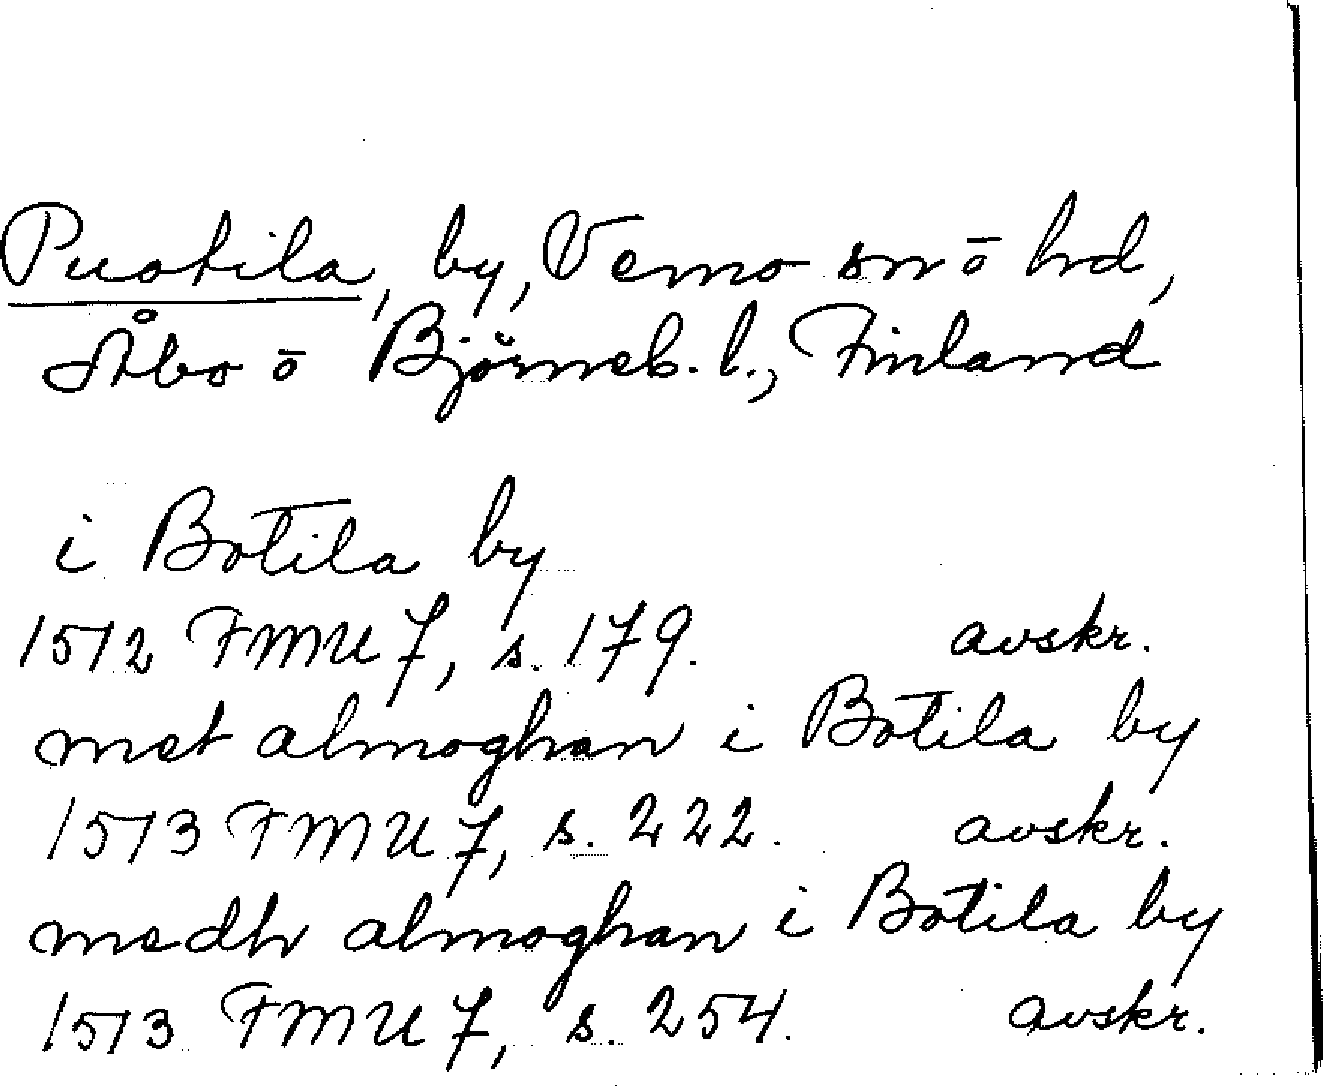 Puotila, by, Vemo sn ō hd,
Åbo ō Björneb. l., Finland
i Botila by
1512 FMU 7, s. 179. avskr.
met almoghan i Botila by
1513 FMU 7, s. 222. avskr.
medh almoghan i Botila by
1513 FMU 7, s. 254. avskr.